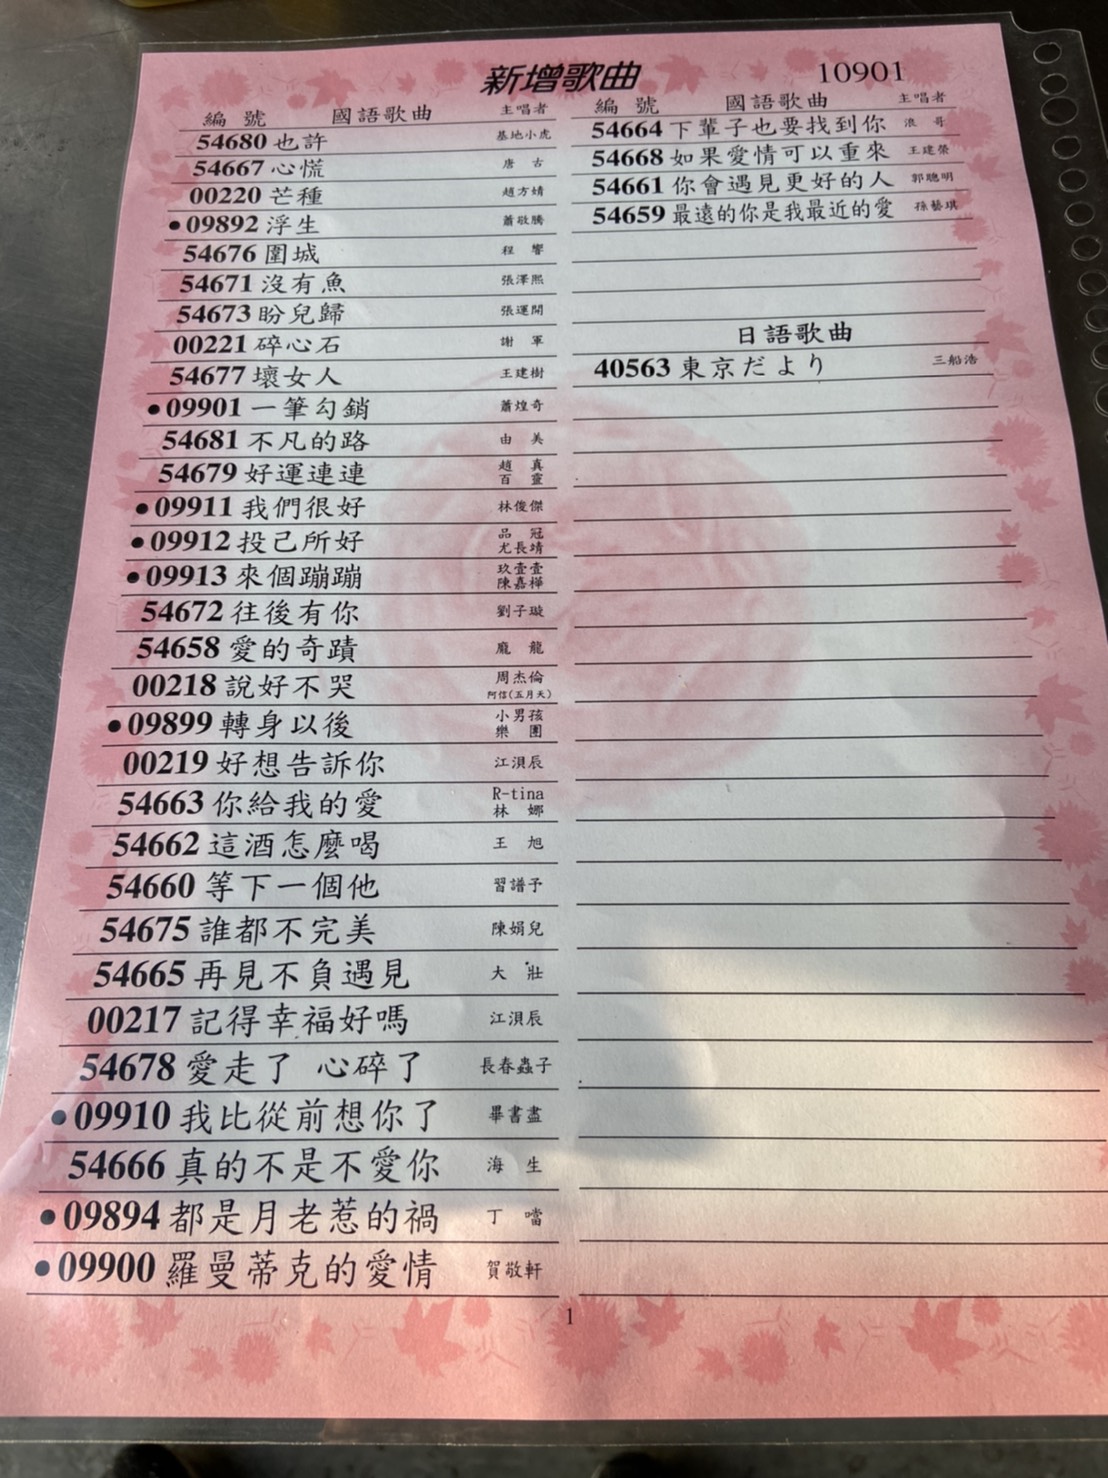 新增歌曲 10901
編號 國語歌曲 主唱者
54680 也許 基地小虎
54667 心慌 唐古
00220 芒種 趙方婧
●09892 浮生 蕭敬騰
54676 圍城 程響
54671 沒有魚 張澤熙
54673 盼兒歸 張運開
00221 碎心石 謝軍
54677 壞女人 王建樹
●09901 一筆勾銷 蕭煌奇
54681 不凡的路 由美
54679 好運連連 趙真 百靈
●09911 我們很好 林俊傑
●09912 投己所好 品冠 尤長靖
●09913 來個蹦蹦 玖壹壹 陳嘉樺
54672 往後有你 劉子璇
54658 愛的奇蹟 龐龍
00218 說好不哭 周杰倫 阿信(五月天)
●09899 轉身以後 小男孩樂團
00219 好想告訴你 江浿辰
54663 你給我的愛 R-tina 林娜
54662 這酒怎麼喝 王旭
54660 等下一個他 習譜予
54675 誰都不完美 陳娟兒
54665 再見不負遇見 大壯
00217 記得幸福好嗎 江浿辰
54678 愛走了 心碎了 長春蟲子
●09910 我比從前想你了 畢書盡
54666 真的不是不愛你 海生
●09894 都是月老惹的禍 丁噹
●09900 羅曼蒂克的愛情 賀敬軒
編號 國語歌曲 主唱者
54664 下輩子也要找到你 浪哥
54668 如果愛情可以重來 王建榮
54661 你會遇見更好的人 郭聰明
54659 最遠的你是我最近的愛 孫藝琪
日語歌曲
40563 東京だより 三船浩
1